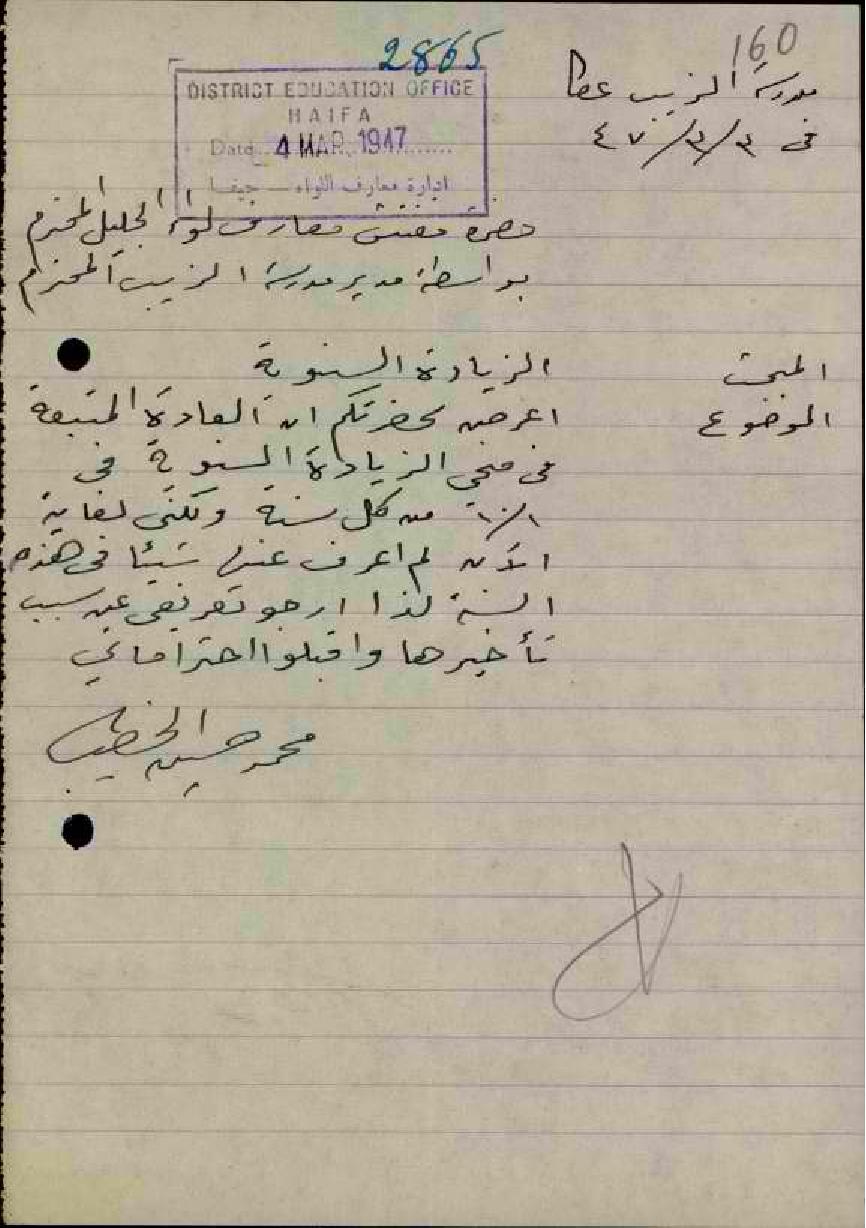 160
2865
مدرسة الزيب عكا
في ٣/٣/٤٧
DISTRICT EDUCATION OFFICE
HAIFA
Date 4 MAR 1947
ادارة معارف اللواء - حيفا
حضرة مفتش معارف لواء الجليل المحترم
بواسطة مدير مدرسة الزيب المحترم
المبحث الزيادة السنوية
الموضوع اعرض لحضرتكم ان العادة المتبعة
في منحي الزيادة السنوية في
١/١ من كل سنة ولكني لغاية
الآن لم اعرف عنها شيئا في هذه
السنة لذا ارجو تعريفي عن سبب
تأخيرها واقبلوا احتراماتي
محمد حسين الخطيب